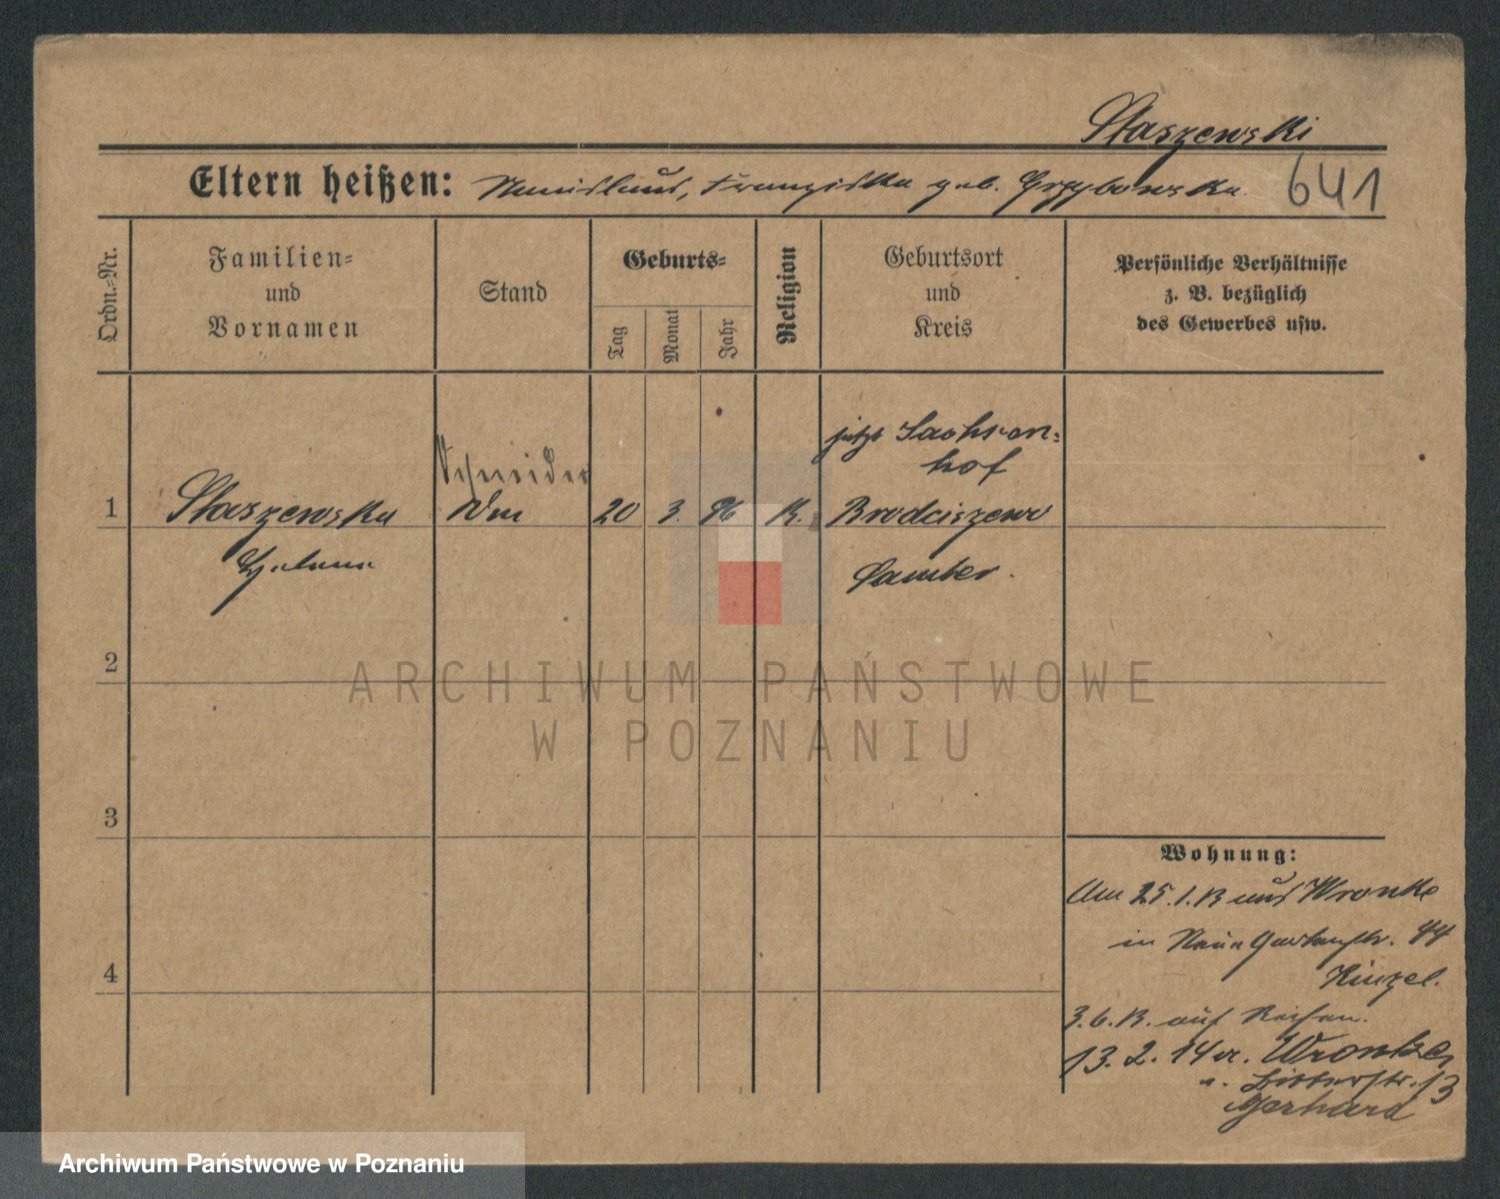 Staszewski
Eltern heißen: Franziska geb. Grzybowska
641
Ordn.-Nr.
Familien-
und
Vornamen
Stand
Geburts-
Tag
Monat
Jahr
Religion
Geburtsort
und
Kreis
Persönliche Verhältnisse
z. B. bezüglich
des Gewerbes usw.
jetzt Sachsen-
hof
Schneider
1 Staszewska 20 3. 96 K. Brodziszewo
Samter.
2
3
4
Wohnung:
Am 25.1.13 aus Wronke
in Neue Gartenstr. 44
Kinzel.
3.6.13. auf Reisen.
13.2.14 Wronke,
Ritterstr. 13
Gerhard
ARCHIWUM PAŃSTWOWE
W POZNANIU
Archiwum Państwowe w Poznaniu